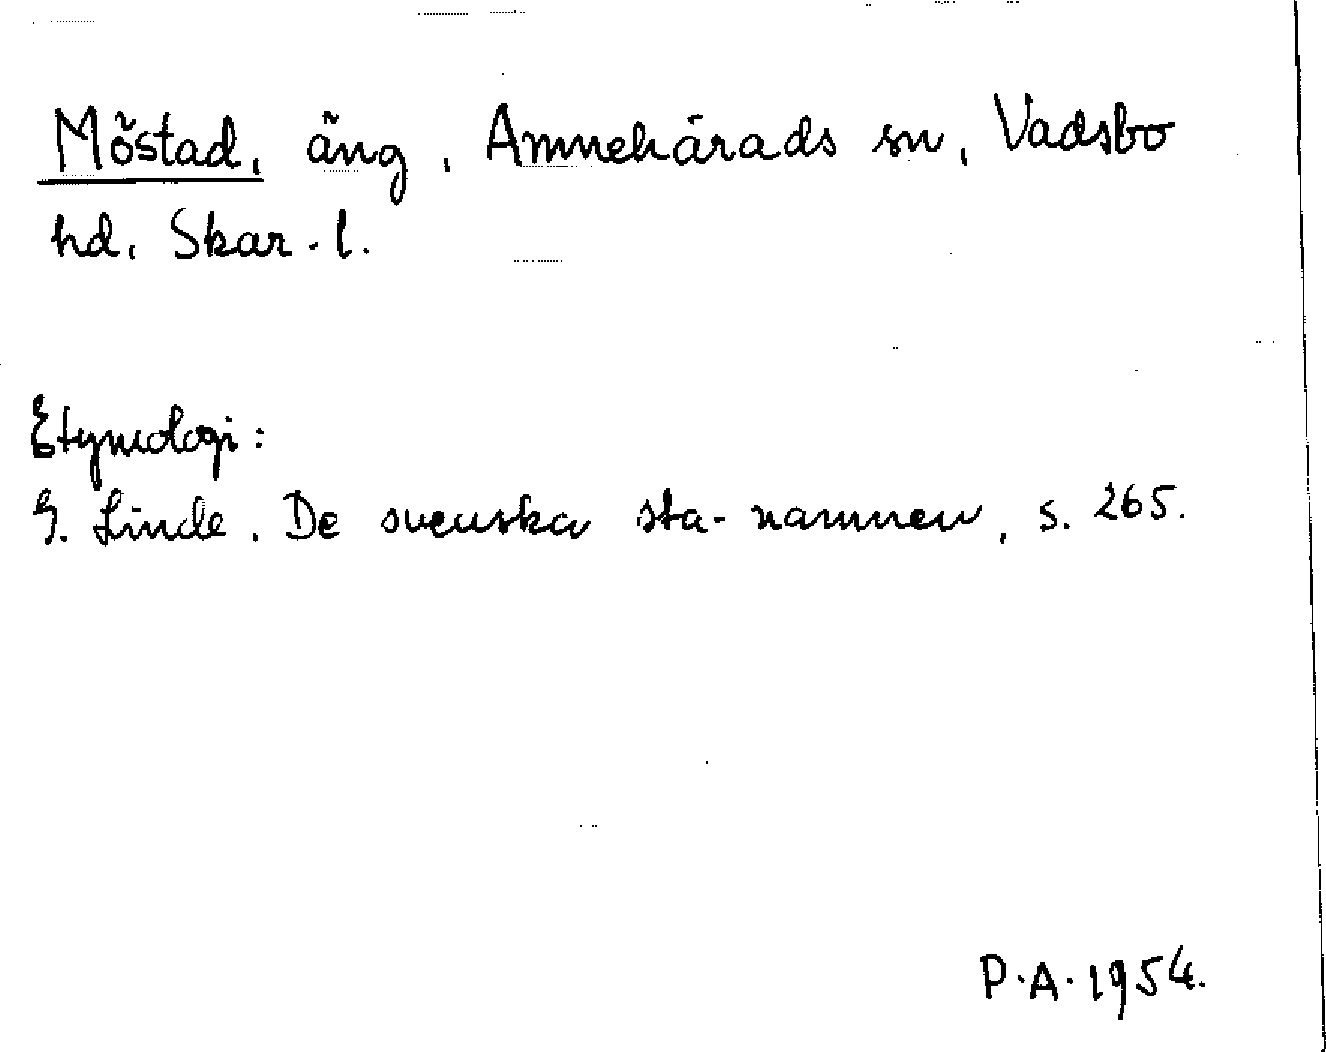 Möstad, äng, Amnehärads sn, Vadsbo
hd, Skar. l.
Etymologi:
G. Linde. De svenska sta-namnen, s. 265.
P.A. 1954.